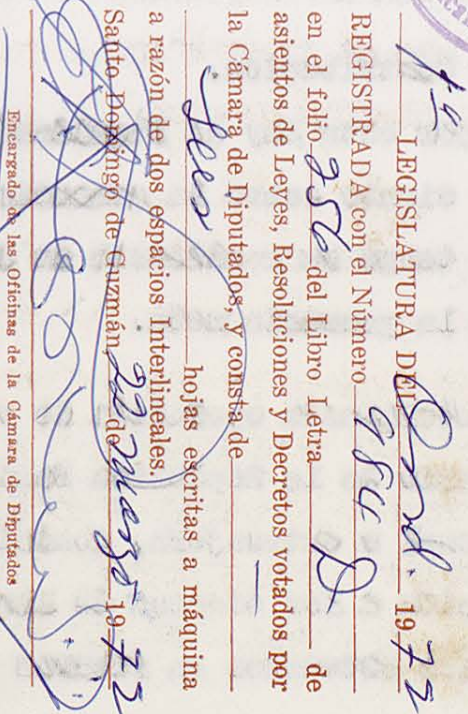 1ª LEGISLATURA DEL Ord. 1973
REGISTRADA con el Número
en el folio 256 del Libro Letra D de
asientos de Leyes, Resoluciones y Decretos votados por
la Cámara de Diputados y consta de
hojas escritas a máquina
a razón de dos espacios interlineales.
Santo Domingo de Guzmán, 22 Marzo 1973
Encargado de las Oficinas de la Cámara de Diputados